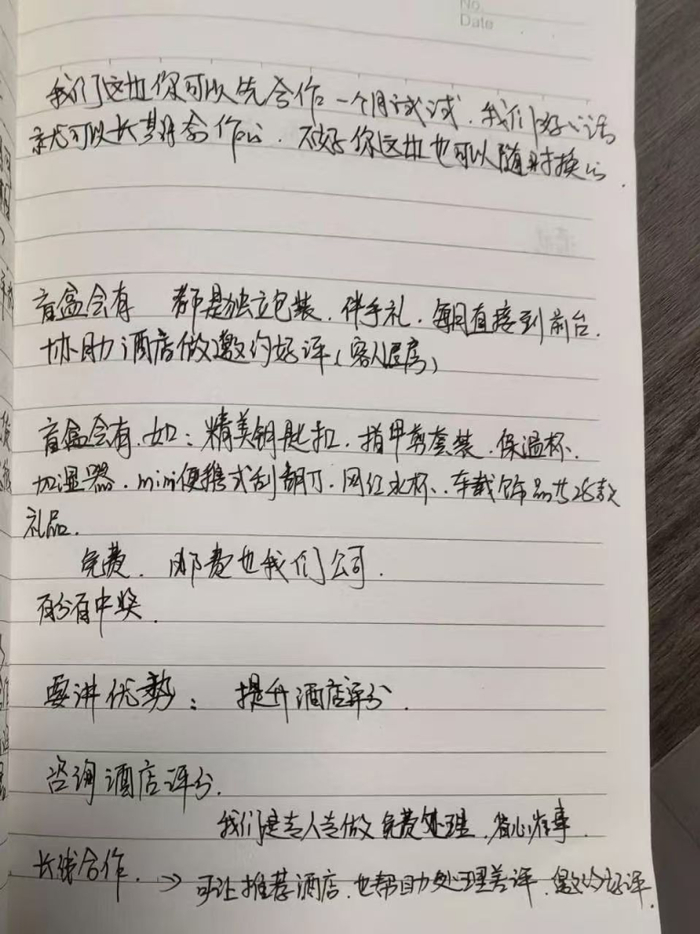 No
Date
我们这边你可以先合作一个月试试.我们好的话
就可以长期合作的.不好你这边也可以随时换的.
盲盒会有 都是独立包装.伴手礼.每月直接到前台.
协助酒店做邀约好评(客人退房)
盲盒会有.如:精美钥匙扣.指甲剪套装.保温杯.
加湿器.mini便携式刮胡刀.网红水杯.车载饰品共28款
礼品.
免费.邮费也我们公司.
百分百中奖.
要讲优势: 提升酒店评分.
咨询酒店评分.
我们是专人专做 免费处理.省心省事.
长线合作. → 可让推荐酒店.也帮助处理差评.邀约好评.